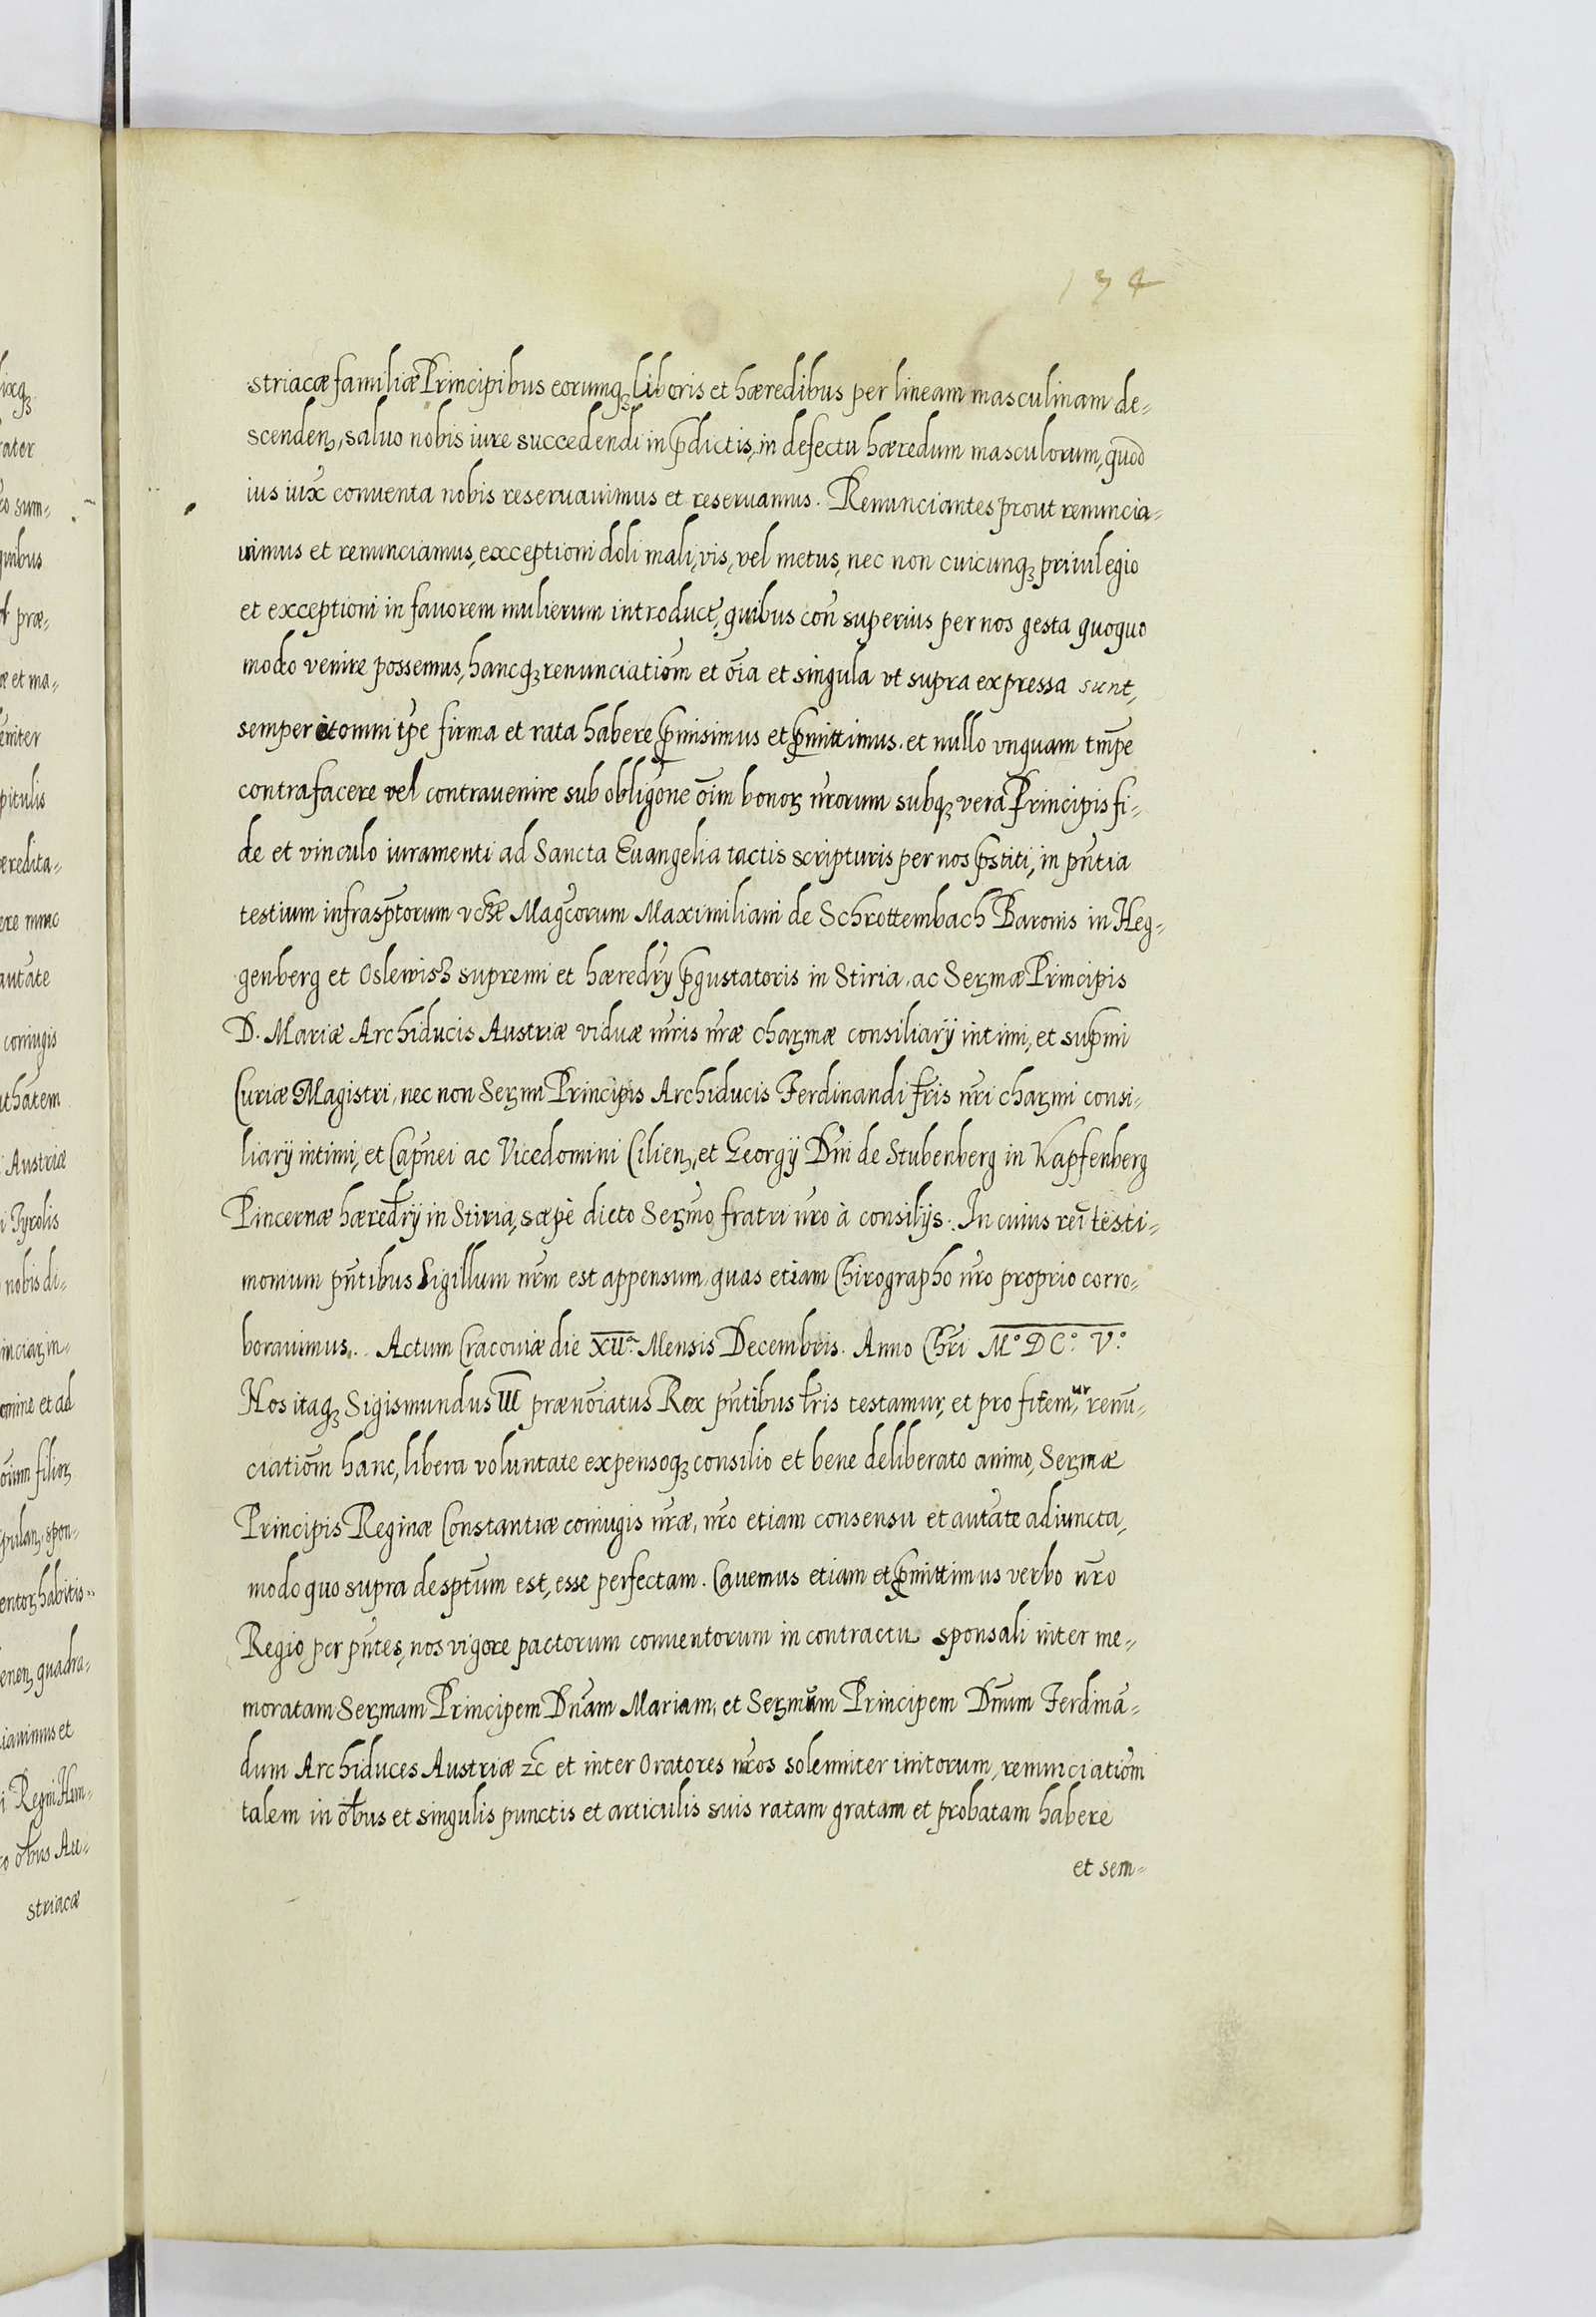 134
striacæ familiæ Principibus eorumq₃ liberis et hæredibus per lineam masculinam de=
scenden₃, saluo nobis iure succedendi in p̄dictis, in defectu hæredum masculorum, quod
ius iux̄ conuenta nobis reseruauimus et reseruamus. Renunciantes prout renuncia=
uimus et renunciamus, exceptioni doli mali, vis, vel metus, nec non cuicunq₃ priuilegio
et exceptioni in fauorem mulierum introduct̄, quibus con̄ superius per nos gesta quoquo
modo venire possemus, hancq₃ renunciatiōm et ōia et singula vt supra expressa sunt,
semper et omni tp̄e firma et rata habere p̄misimus et p̄mittimus. et nullo vnquam tmp̄e
contrafacere vel contrauenire sub obligōne ōim bonoꝝ nr̄orum subq₃ vera Principis fi=
de et vinculo iuramenti ad Sancta Euangelia tactis scripturis per nos p̄stiti, in pn̄tia
testium infrasp̄torum Maḡcorum Maximiliani de Schrottembach Baronis in Heg=
genberg et Oslewisz supremi et hæredr̄y p̄gustatoris in Stiria. ac Serꝫmæ Principis
D. Mariæ Archiducis Austriæ viduæ mr̄is nr̄æ charꝫmæ consiliarij intimi, et sup̄mi
Curiæ Magistri, nec non Serꝫmi Principis Archiducis Ferdinandi fr̄is nr̄i charꝫmi consi=
liarij intimi, et Cap̄nei ac Vicedomini Cilien₃, et Georgij Dn̄i de Stubenberg in Kapfenberg
Pincernæ hæredr̄ij in Stiria, sæpè dicto Serꝫmo fratri nr̄o à consilijs. In cuius rei testi=
monium pn̄tibus Sigillum nr̄m est appensum quas etiam Chirographo nr̄o proprio corro=
borauimus. Actum Cracouiæ die XIIa. Mensis Decembris. Anno Chr̄i M.o D C.o V.o
Nos itaq₃ Sigismundus III prænōiatus Rex pn̄tibus lr̄is testamur, et profitem̄ur renū=
ciatiōm hanc, libera voluntate expensoq₃ consilio et bene deliberato animo, Serꝫmæ
Principis Reginæ Constantiæ coniugis nr̄æ, nr̄o etiam consensu et autāte adiuncta,
modo quo supra desp̄tum est, esse perfectam. Cauemus etiam et p̄mittimus verbo nr̄o
Regio per pn̄tes, nos vigore pactorum conuentorum in contractu sponsali inter me=
moratam Serꝫmam Principem Dn̄am Mariam, et Serꝫmum Principem Dn̄um Ferdinā=
dum Archiduces Austriæ ꝛc̄ et inter Oratores nr̄os solenniter initorum, renunciatiōm
talem in ōbus et singulis punctis et articulis suis ratam gratam et probatam habere
et sem=